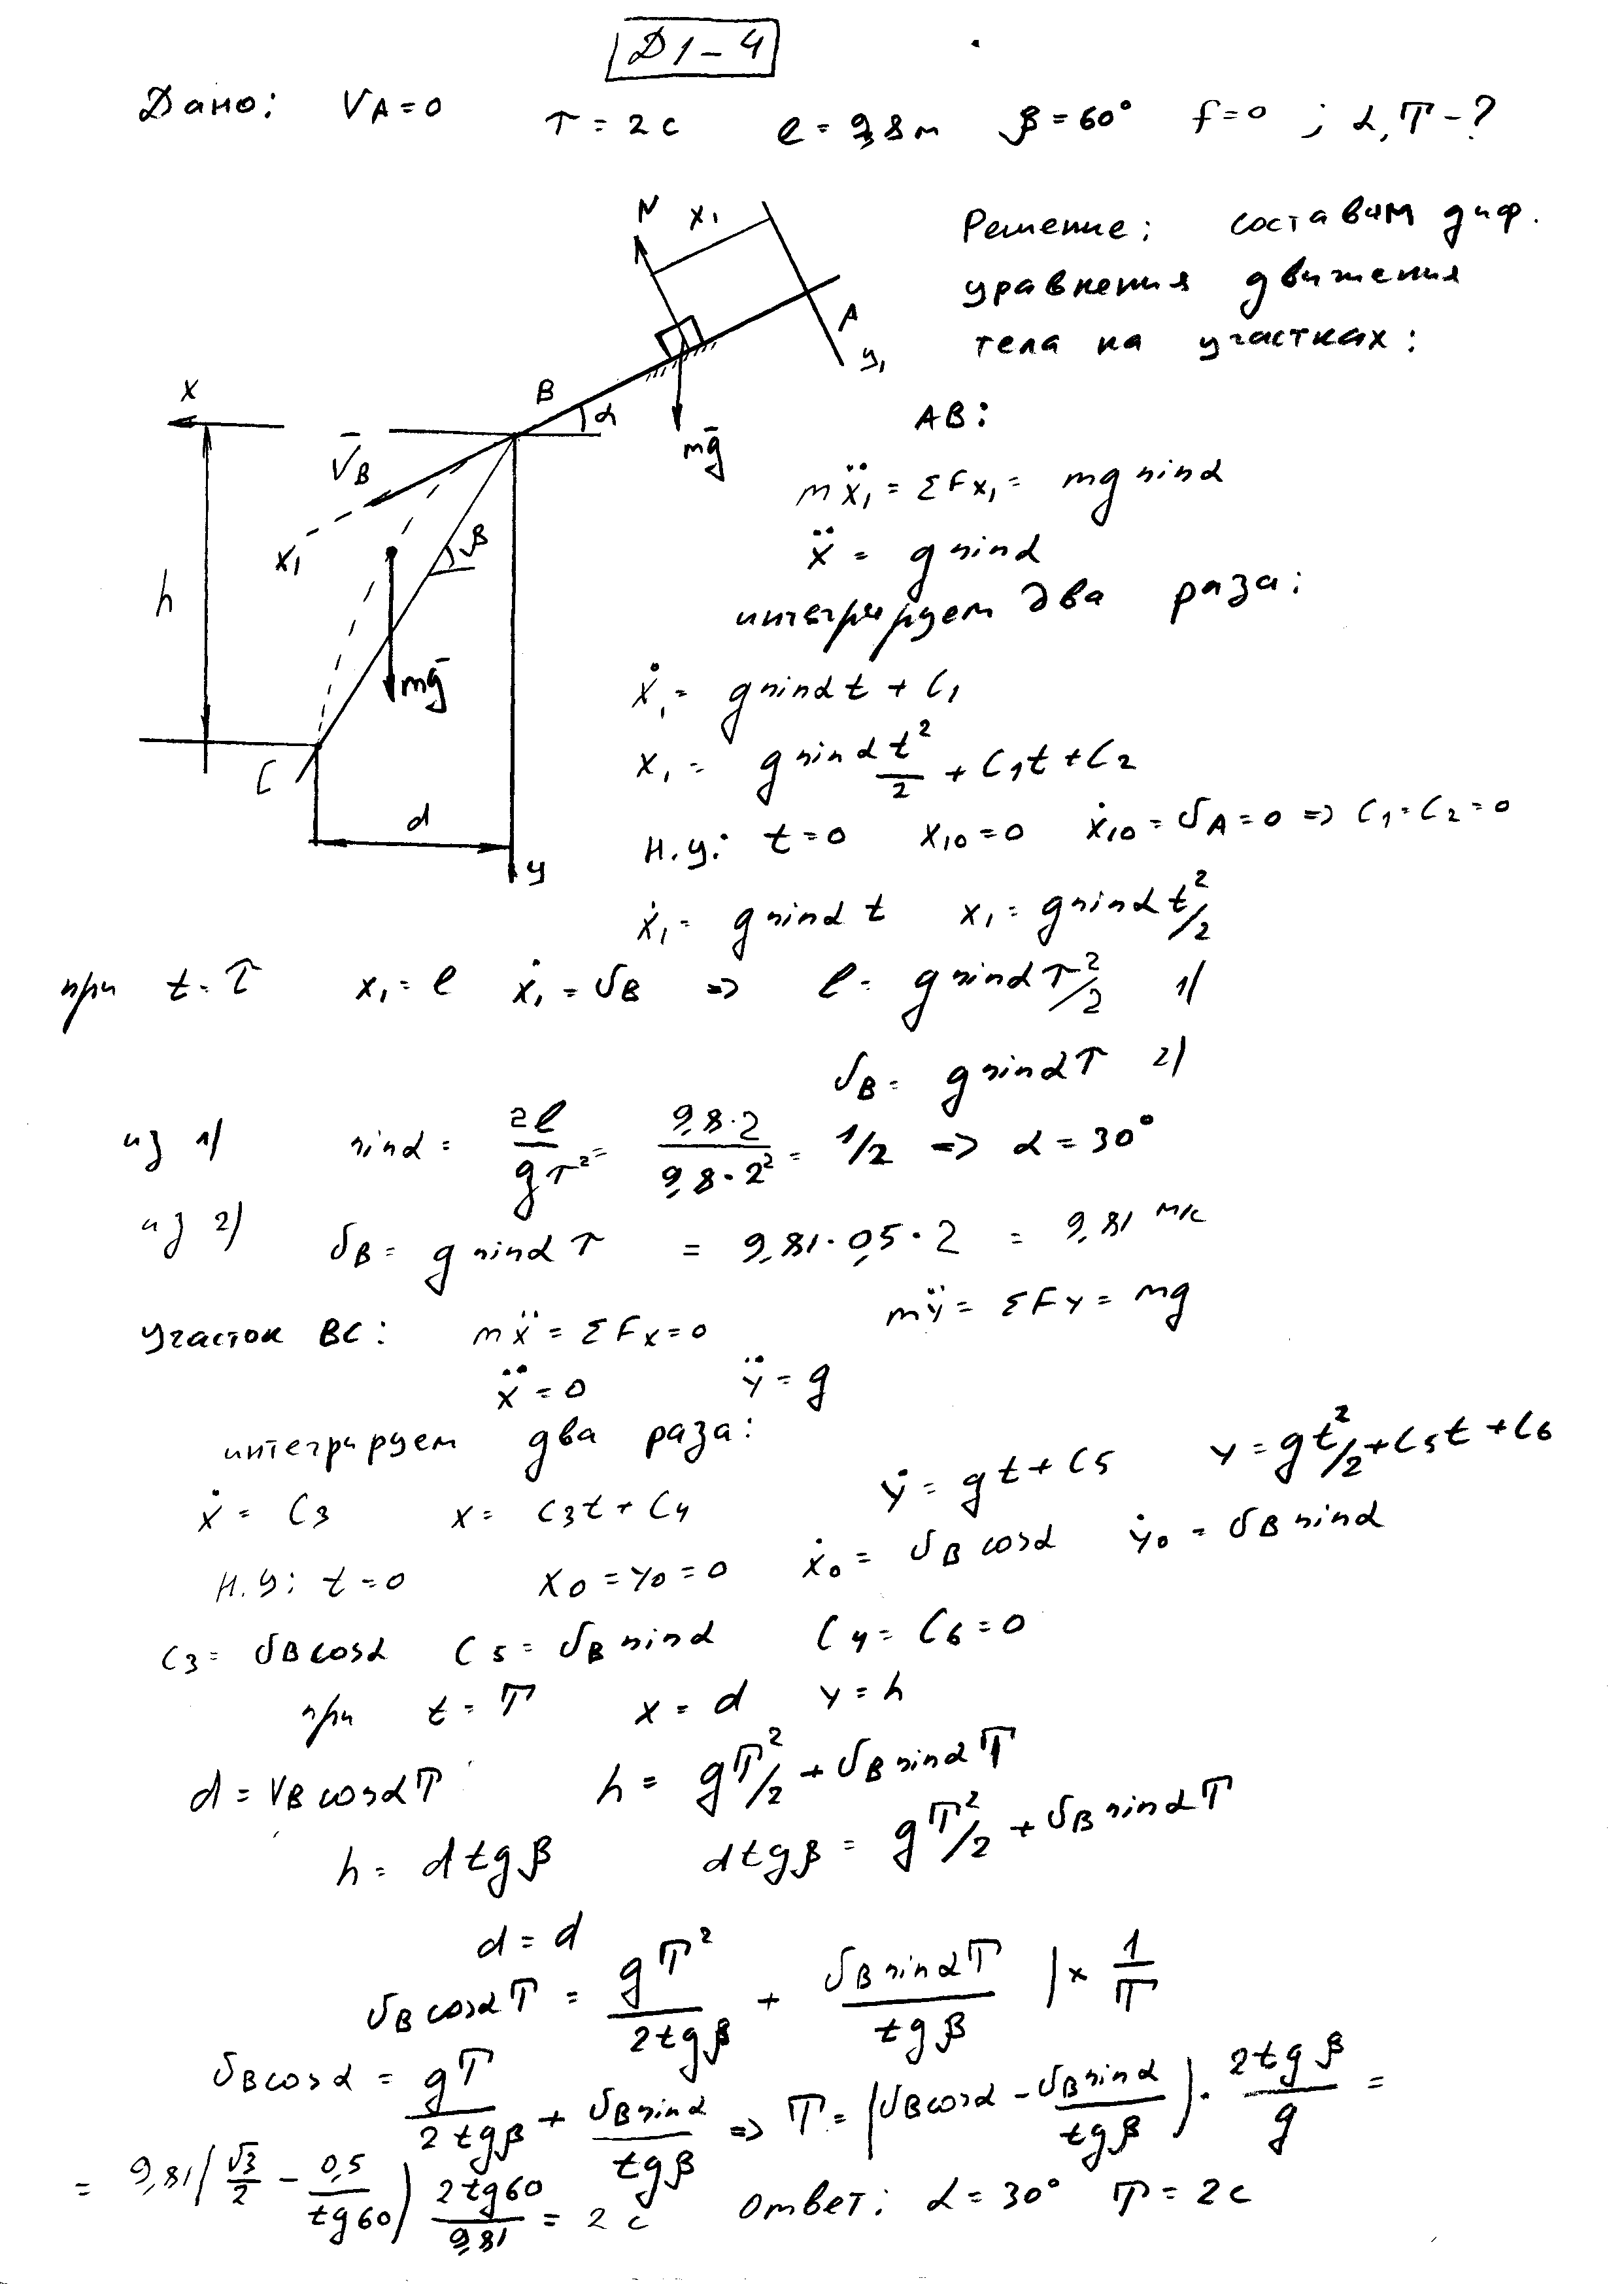 Д1-4
Дано: VA=0 τ=2c l=9,8м β=60° f=0 ; α, T-?
Решение: составим диф.
уравнения движения
тела на участках:
N x₁ A y₁
x B α mḡ
V̄B x₁ β
h mḡ
C d y
AB:
mẍ₁ = ΣFx₁ = mg sinα
ẍ = g sinα
интегрируем два раза:
ẋ₁ = g sinα t + C₁
x₁ = g sinα t²/2 + C₁t + C₂
Н.у: t=0 x₁₀=0 ẋ₁₀ = VA = 0 => C₁=C₂=0
ẋ₁ = g sinα t x₁ = g sinα t²/2
при t=τ x₁=l ẋ₁=VB => l = g sinα τ²/2 1)
VB = g sinα τ 2)
из 1) sinα = 2l/gτ² = 9,8·2/9,8·2² = 1/2 => α=30°
из 2) VB = g sinα τ = 9,81·0,5·2 = 9,81 м/с
Участок BC: mẍ = ΣFx = 0 mÿ = ΣFy = mg
ẍ=0 ÿ=g
интегрируем два раза:
ẋ = C₃ x = C₃t + C₄ ẏ = gt + C₅ y = gt²/2 + C₅t + C₆
Н.у: t=0 x₀=y₀=0 ẋ₀ = VB cosα ẏ₀ = VB sinα
C₃ = VB cosα C₅ = VB sinα C₄ = C₆ = 0
при t=T x=d y=h
d = VB cosα T h = gT²/2 + VB sinα T
h = d tgβ d tgβ = gT²/2 + VB sinα T
d = d
VB cosα T = gT²/2tgβ + VB sinα T/tgβ |× 1/T
VB cosα = gT/2tgβ + VB sinα/tgβ => T = (VB cosα - VB sinα/tgβ) · 2tgβ/g =
= 9,81(√3/2 - 0,5/tg60) 2tg60/9,81 = 2c Ответ: α=30° T=2c